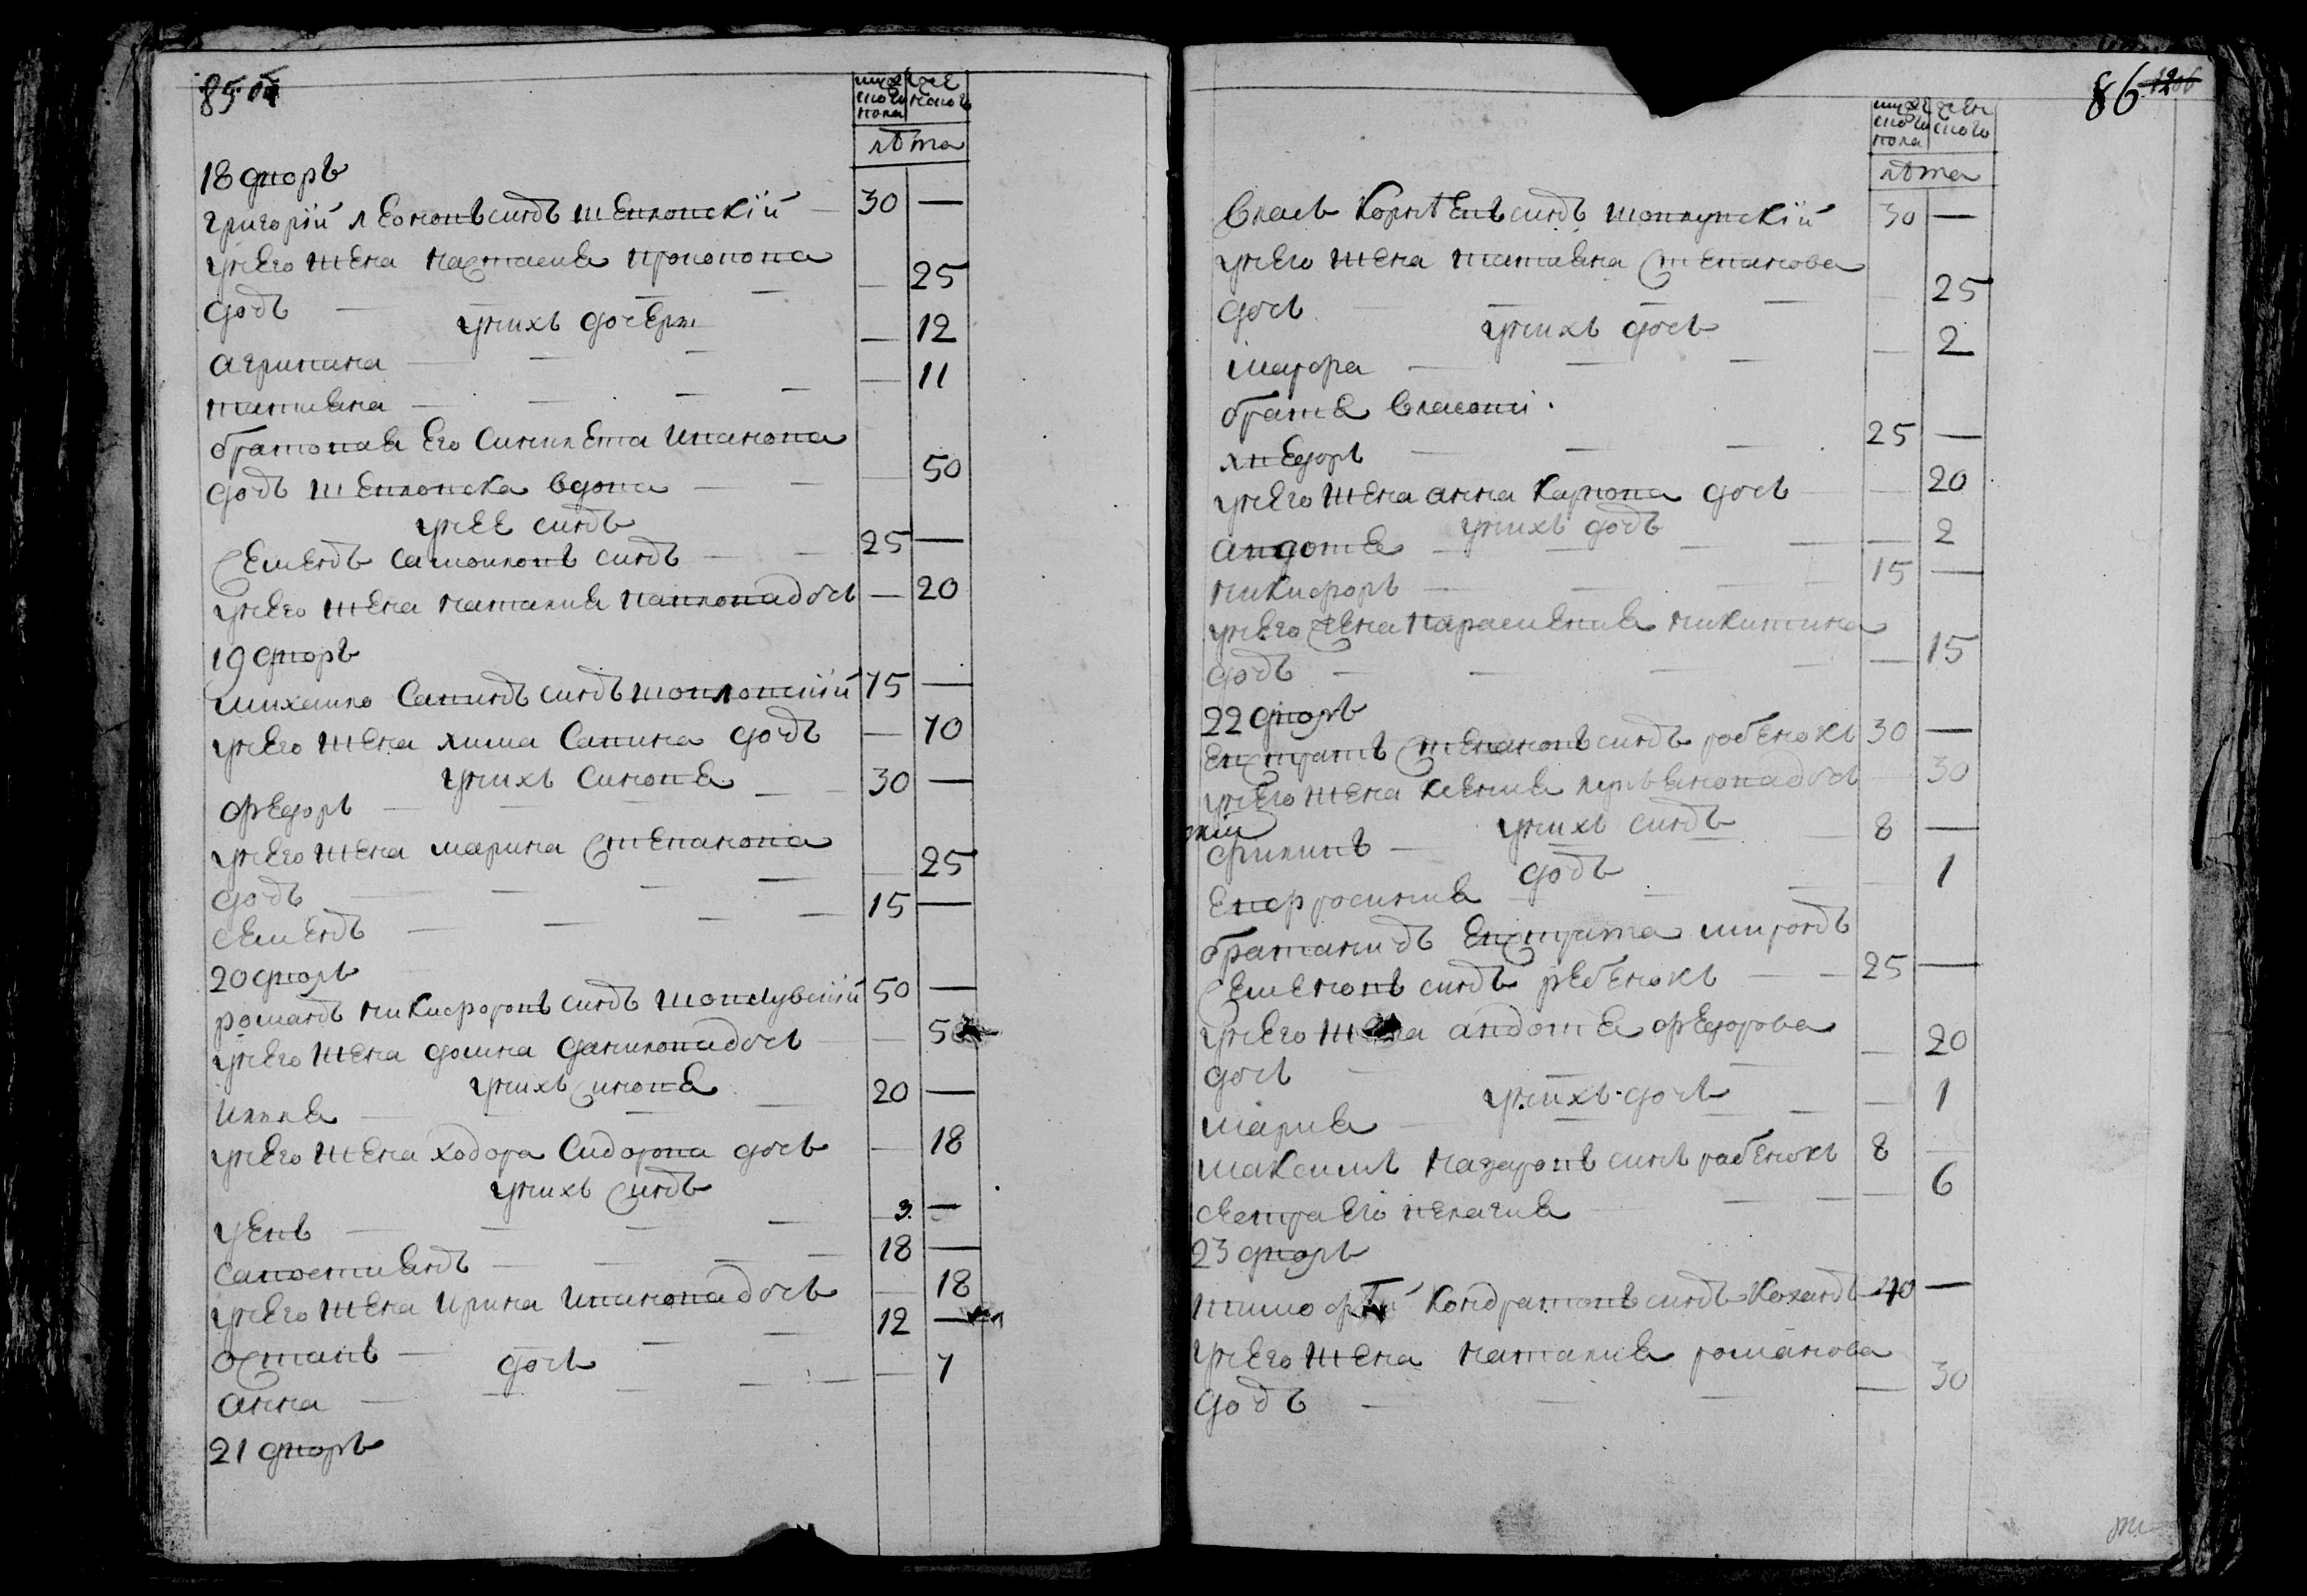 85
муж
ского
пола
жен
ского
лѣта
18 дворъ
григорій леоновъ синъ шевловскій 30 —
унего жена настасия прокопова
дочъ — 25
унихъ дочери
агрипина — 12
татияна — 11
братовая его синклета иванова
дочъ шевловска вдова — 50
унее синъ
Семенъ самоиловъ синъ 25 —
унего жена наталия павловадочь — 20
19 дворъ
михаило Савинъ синъ шовловский 75 —
унего жена химa Савина дочъ — 70
унихъ Синовя
Федоръ 30 —
унего жена марина Степанова
дочъ — 25
Семенъ 15 —
20 дворъ
романъ никифоровъ синъ шовлувский 50 —
унего жена домна даниловадочь —
унихъ Синовя
илля 20 —
унего жена ходора Сидорова дочь — 18
унихъ Синъ
уевъ — 3 —
Савостиянъ 18 —
унего жена ирина ивановадочь — 18
Остапъ 12 —
дочь
анна — 7
21 дворъ
86
муж
ского
пола
жен
ского
лѣта
Власъ Корнѣевъ синъ шовлувскій 30 —
унего жена татияна Степанова
дочь — 25
унихъ дочь
мавра — 2
братя Власови
хведоръ 25 —
унего жена анна Карпова дочь — 20
унихъ дочъ
авдотя — 2
никифоръ 15 —
унего жена парасцевия никитина
дочъ — 15
22 дворъ
Евстратъ Степановъ синъ робенокъ 30 —
унего жена ксения лукяновадочь 30
унихъ синъ
филипъ 8 —
дочъ
Евфросиния — 1
братаничъ Евстрата миронъ
Семеновъ синъ ребенокъ 25 —
унего жена авдотя федорова
дочь — 20
унихъ дочь
мария — 1
максимъ назаровъ синъ рабенокъ 8
сестра его пелагия — 6
23 дворъ
тимофѣй Кондратовъ синъ Коханъ 40 —
унего жена наталия романова
дочъ — 30